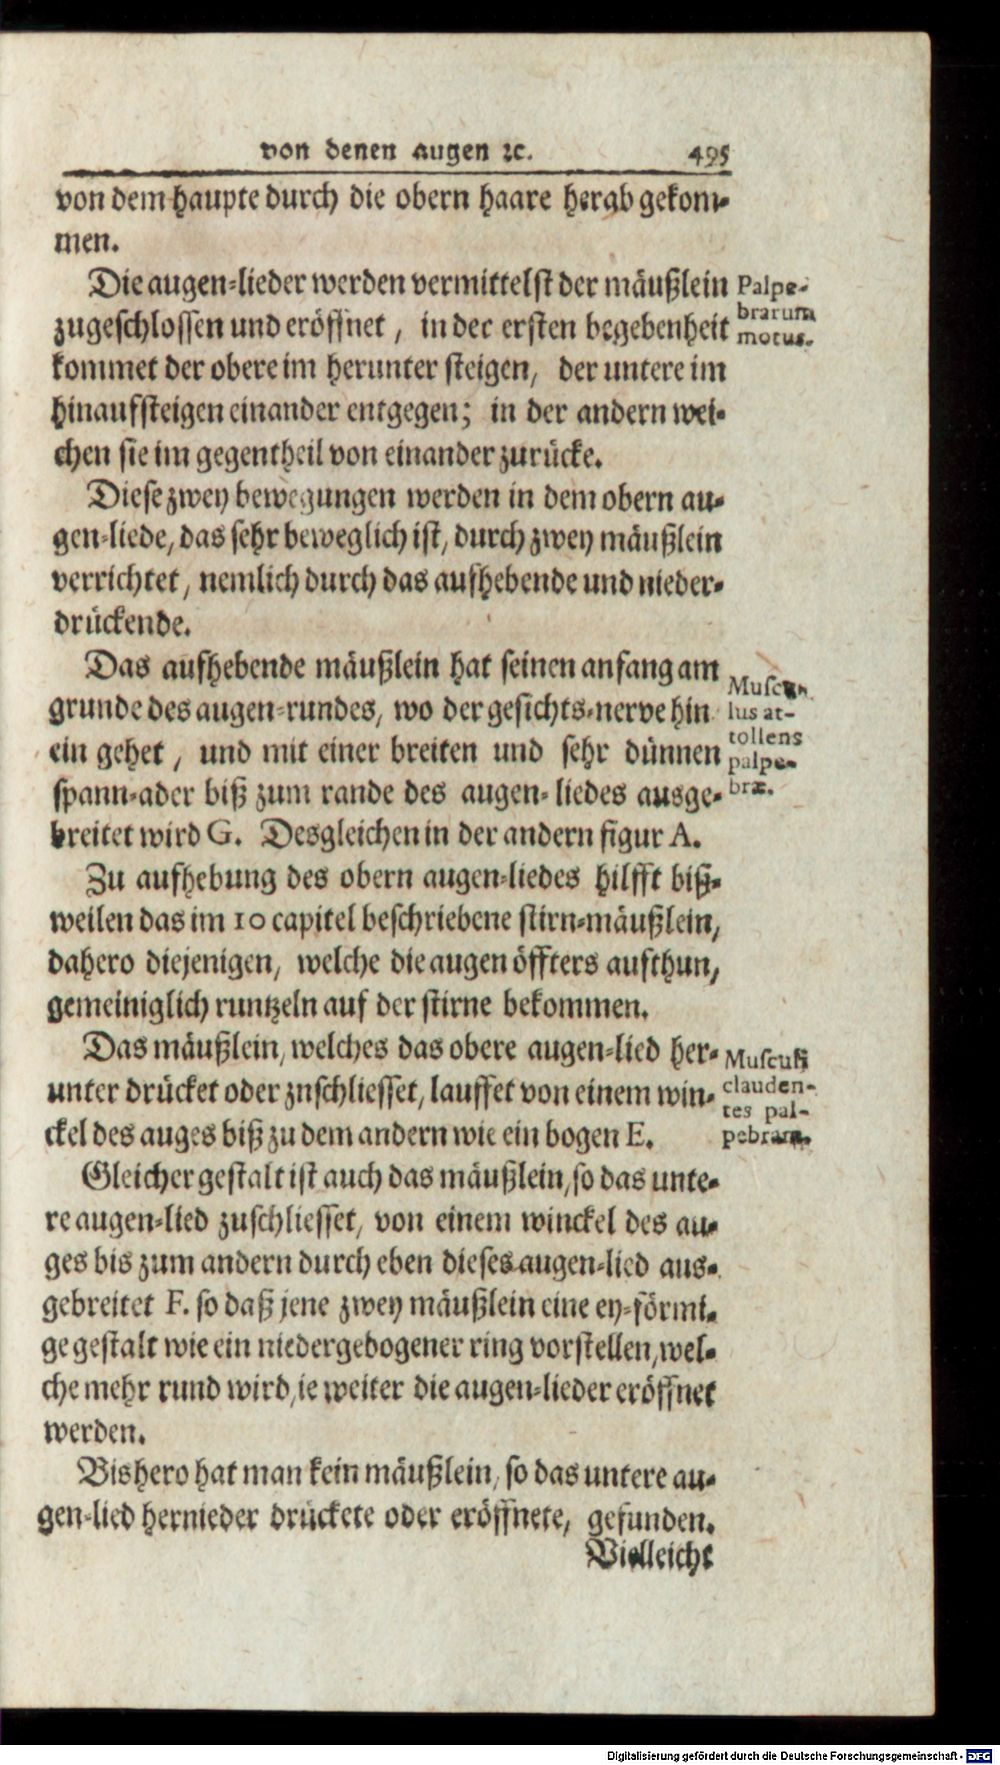 von denen augen ꝛc. 495
von dem haupte durch die obern haare herab gekom-
men.
Die augen-lieder werden vermittelst der mäußlein
zugeschlossen und eröffnet, in der ersten begebenheit
kommet der obere im herunter steigen, der untere im
hinaufsteigen einander entgegen; in der andern wei-
chen sie im gegentheil von einander zurücke.
Palpe-
brarum
motus.
Diese zwey bewegungen werden in dem obern au-
gen-liede, das sehr beweglich ist, durch zwey mäußlein
verrichtet, nemlich durch das aufhebende und nieder-
drückende.
Das aufhebende mäußlein hat seinen anfang am
grunde des augen-rundes, wo der gesichts-nerve hin
ein gehet, und mit einer breiten und sehr dünnen
spann-ader biß zum rande des augen-liedes ausge-
breitet wird G. Desgleichen in der andern figur A.
Muscu-
lus at-
tollens
palpe-
bræ.
Zu aufhebung des obern augen-liedes hilfft biß-
weilen das im 10 capitel beschriebene stirn-mäußlein,
dahero diejenigen, welche die augen öffters aufthun,
gemeiniglich runtzeln auf der stirne bekommen.
Das mäußlein, welches das obere augen-lied her-
unter drücket oder znschliesset, lauffet von einem win-
ckel des auges biß zu dem andern wie ein bogen E.
Musculi
clauden-
tes pal-
pebram.
Gleicher gestalt ist auch das mäußlein, so das unte-
re augen-lied zuschliesset, von einem winckel des au-
ges bis zum andern durch eben dieses augen-lied aus-
gebreitet F. so daß jene zwey mäußlein eine ey-förmi-
ge gestalt wie ein niedergebogener ring vorstellen, wel-
che mehr rund wird, ie weiter die augen-lieder eröffnet
werden.
Bishero hat man kein mäußlein, so das untere au-
gen-lied hernieder drückete oder eröffnete, gefunden.
Vielleicht
Digitalisierung gefördert durch die Deutsche Forschungsgemeinschaft - DFG